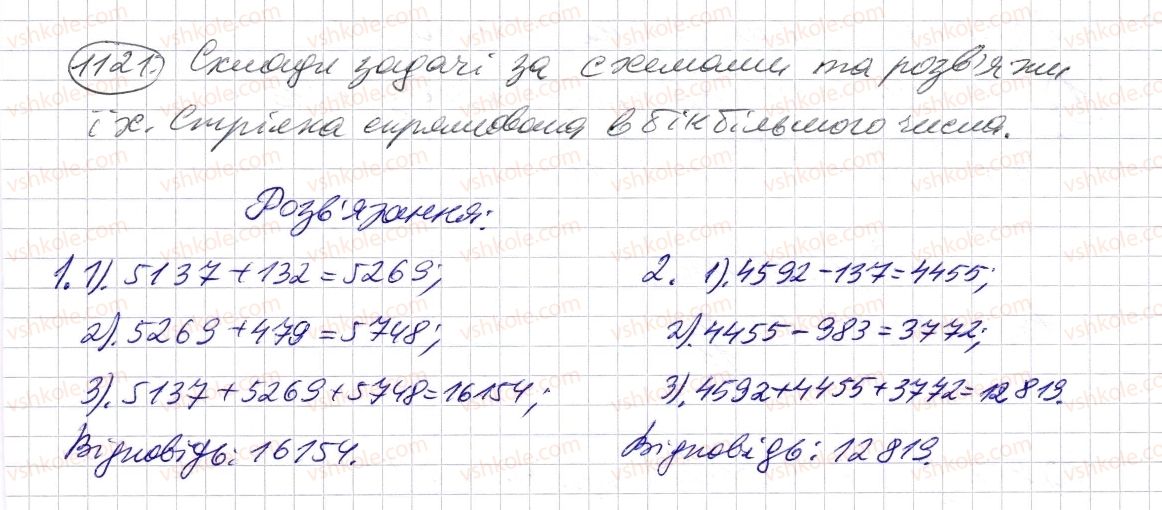 1121. Склади задачі за схемами та розв'яжи
їх. Стрілка спрямована в бік більшого числа.
Розв'язання:
1. 1). 5137 + 132 = 5269;
2). 5269 + 479 = 5748;
3). 5137 + 5269 + 5748 = 16154;
Відповідь: 16154.
2. 1). 4592 - 137 = 4455;
2). 4455 - 983 = 3772;
3). 4592 + 4455 + 3772 = 12819.
Відповідь: 12819.
vshkole.com